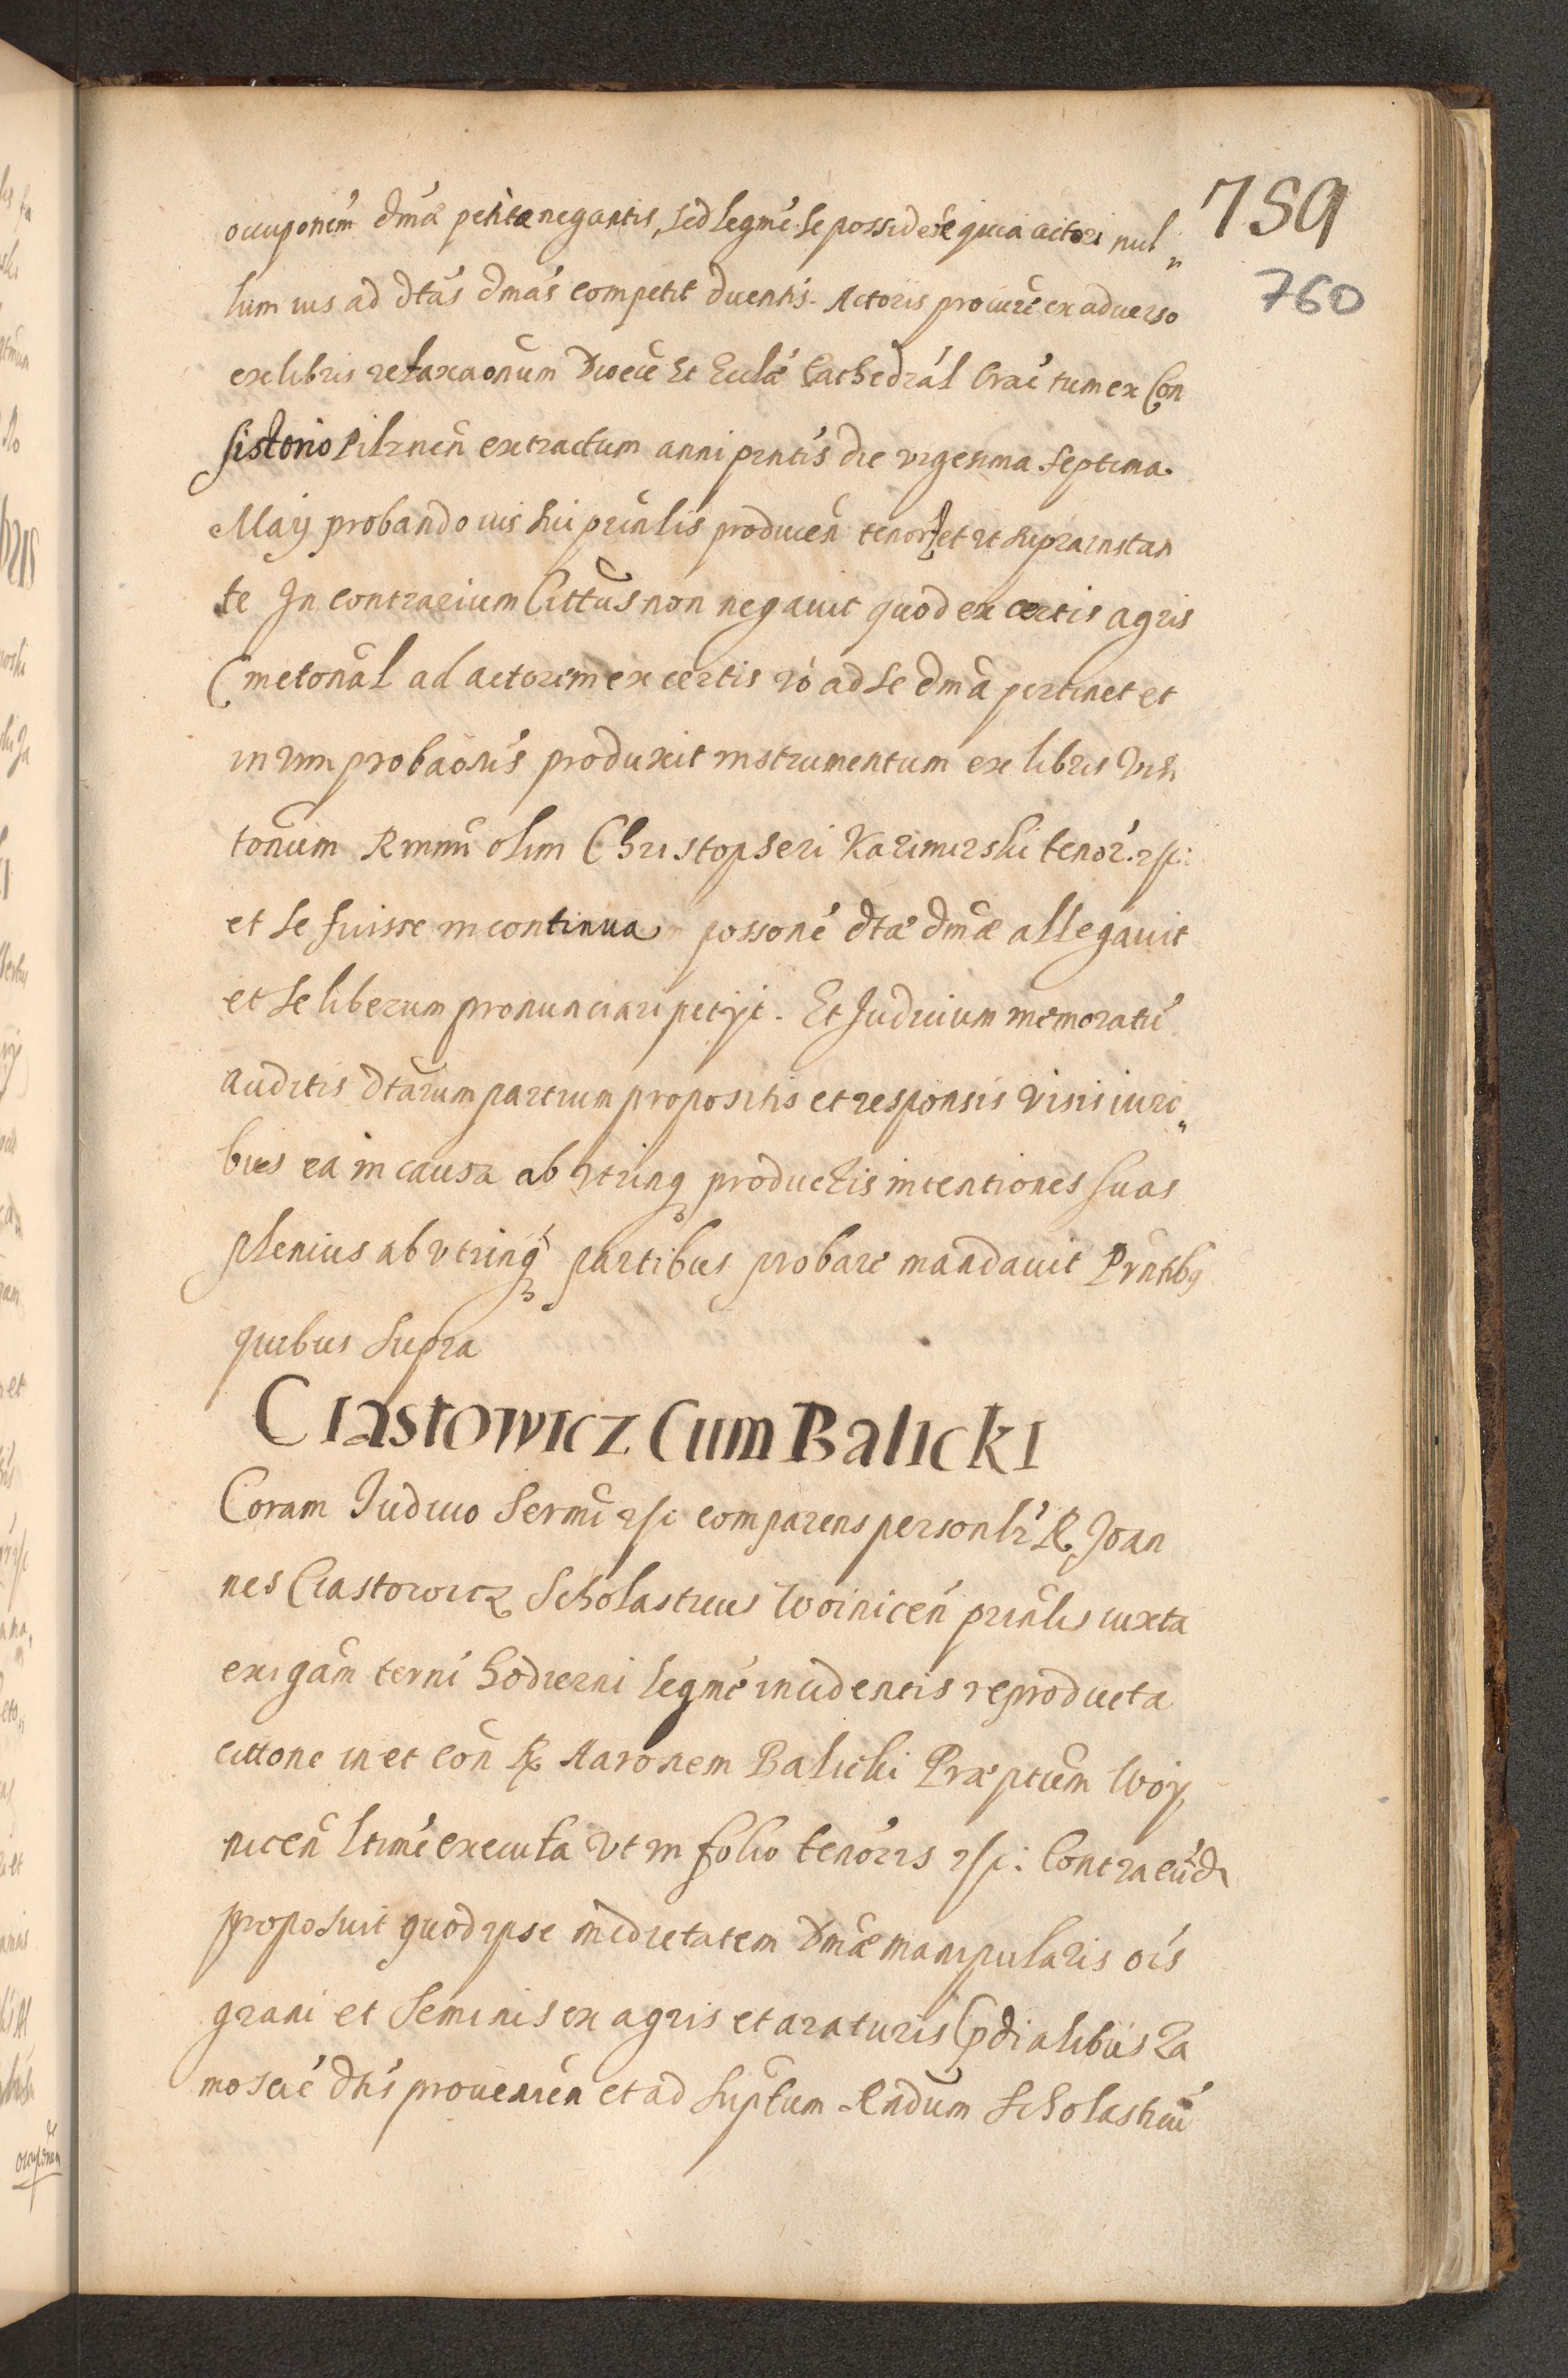 759
760
occuponem dmã petita negantis, sed legme se possidere quia actori nul„
lum ius ad dtas dmas competit dicentis. Actoris procure ex aduerso
ex libris retaxaonum Dioece Et Eccla Cathedral Crac tum ex Con
sistorio Pilznen extractum anni pntis die vigesima septima.
Maij probando ius sui prinlis producen tenor et ut supra instan
te In contrarium Cittus non negauit quod ex certis agris
Cmetonal ad actorem ex certis vo ad se dma pertinet et
in vim probaonis produxit instrumentum ex libris Visi
tonum Rmmi olim Christopheri Kazimirski tenor. rsc:
et se fuisse in continua possone dtae dmae allegauit
et se liberum pronunciari petijt. Et Judicium memoratu
auditis dtarum partium propositis et responsis visis iuri„
bus ea in causa ab vtrinq productis intentiones suas
plenius ab vtrinq partibus probare mandauit Prntibq
quibus supra
Ciastowicz Cum Balicki
Coram Judicio Sermi rsc comparens personlr R. Joan
nes Ciastowicz Scholasticus Woinicen prinlis iuxta
exigam terni hodierni legme incidentis reproducta
cittone in et con R. Aaronem Balicki Praeptum Woy
nicen ltime executa vt in folio tenoris rsc: Contra eund
proposuit quod ipse medietatem Dmae manipularis ois
grani et Seminis ex agris et araturis Cpdialibus Za
moscie dtis prouenien et ad suptum Rndum Scholasticu